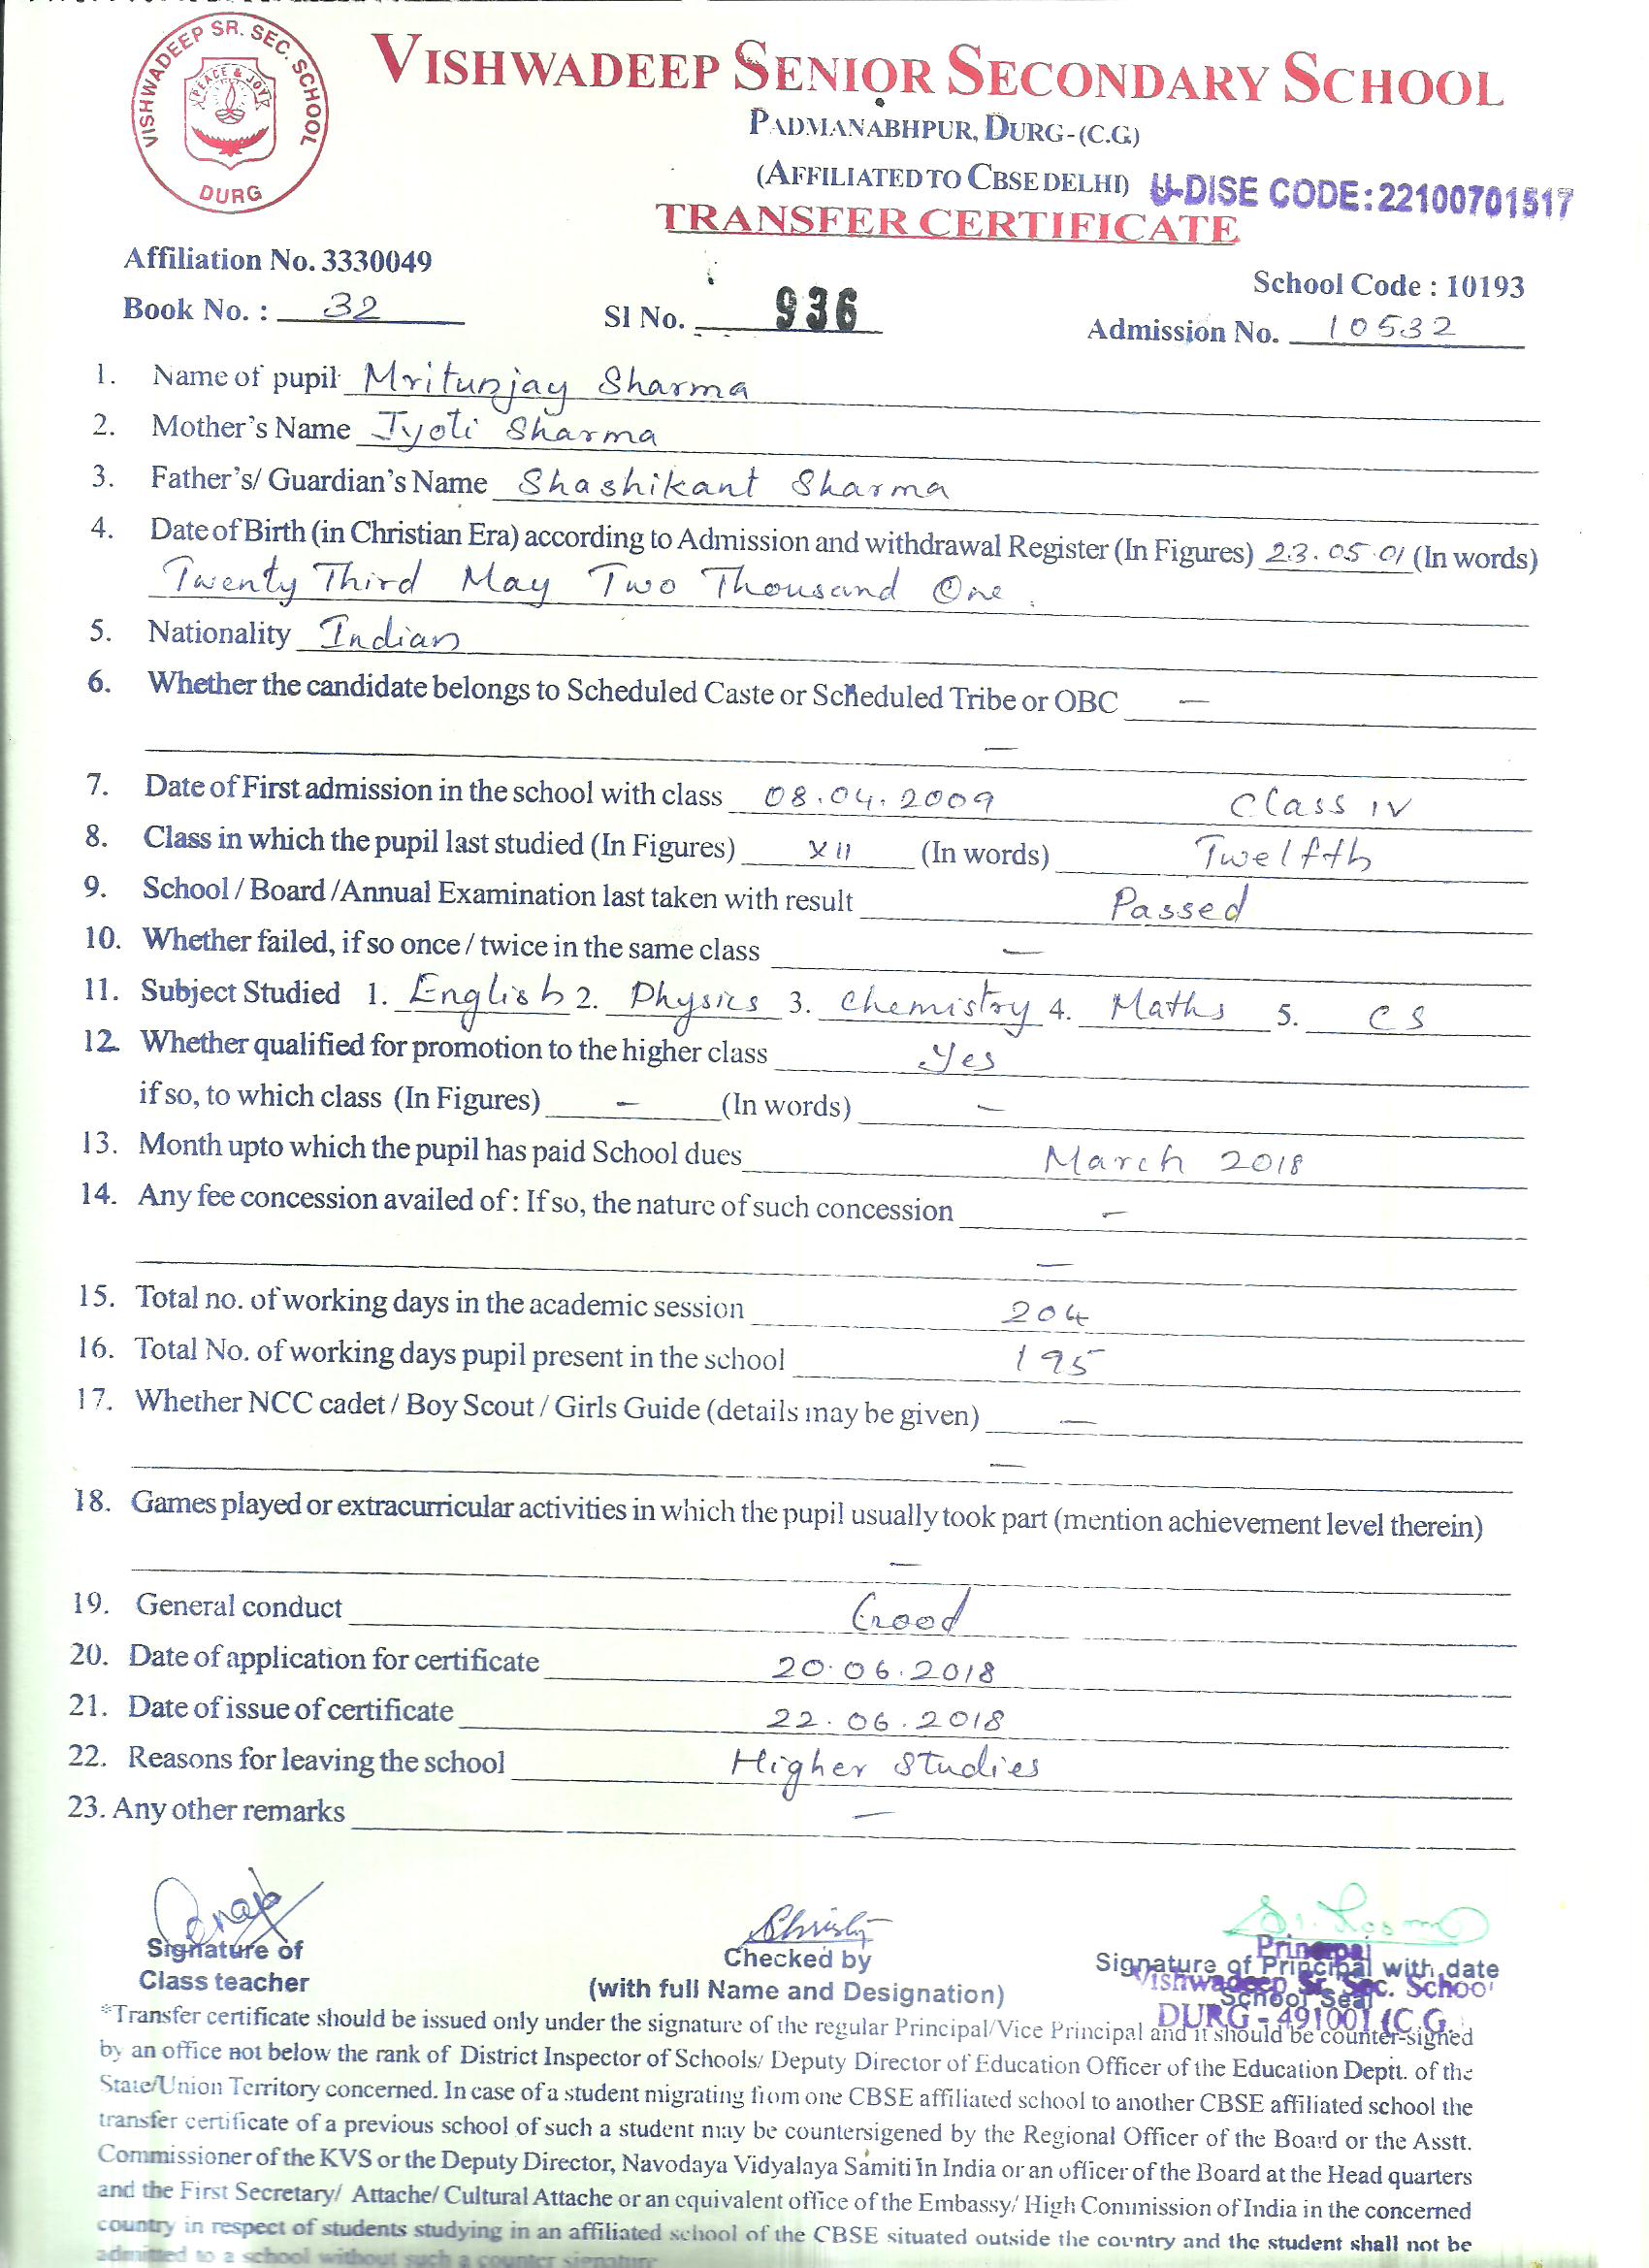 VISHWADEEP SR. SEC. SCHOOL
PEACE & JOY
DURG
VISHWADEEP SENIOR SECONDARY SCHOOL
PADMANABHPUR, DURG-(C.G.)
(AFFILIATED TO CBSE DELHI) U-DISE CODE: 22100701517
TRANSFER CERTIFICATE
Affiliation No. 3330049
School Code : 10193
Book No. : 32 Sl No. 936 Admission No. 10532
1. Name of pupil Mritunjay Sharma
2. Mother's Name Jyoti Sharma
3. Father's/ Guardian's Name Shashikant Sharma
4. Date of Birth (in Christian Era) according to Admission and withdrawal Register (In Figures) 23.05.01 (In words)
Twenty Third May Two Thousand One.
5. Nationality Indian
6. Whether the candidate belongs to Scheduled Caste or Scheduled Tribe or OBC —
—
7. Date of First admission in the school with class 08.04.2009 Class IV
8. Class in which the pupil last studied (In Figures) XII (In words) Twelfth
9. School / Board /Annual Examination last taken with result Passed
10. Whether failed, if so once / twice in the same class —
11. Subject Studied 1. English 2. Physics 3. Chemistry 4. Maths 5. CS
12. Whether qualified for promotion to the higher class Yes
if so, to which class (In Figures) — (In words) —
13. Month upto which the pupil has paid School dues March 2018
14. Any fee concession availed of : If so, the nature of such concession —
—
15. Total no. of working days in the academic session 204
16. Total No. of working days pupil present in the school 195
17. Whether NCC cadet / Boy Scout / Girls Guide (details may be given) —
—
18. Games played or extracurricular activities in which the pupil usually took part (mention achievement level therein)
—
19. General conduct Good
20. Date of application for certificate 20.06.2018
21. Date of issue of certificate 22.06.2018
22. Reasons for leaving the school Higher Studies
23. Any other remarks —
Signature of
Class teacher
Checked by
(with full Name and Designation)
Principal
Signature of Principal with date
Vishwadeep Sr. Sec. School
School Seal
DURG - 491001 (C.G.
*Transfer certificate should be issued only under the signature of the regular Principal/Vice Principal and it should be counter-signed
by an office not below the rank of District Inspector of Schools/ Deputy Director of Education Officer of the Education Deptt. of the
State/Union Territory concerned. In case of a student migrating from one CBSE affiliated school to another CBSE affiliated school the
transfer certificate of a previous school of such a student may be countersigened by the Regional Officer of the Board or the Asstt.
Commissioner of the KVS or the Deputy Director, Navodaya Vidyalaya Samiti In India or an officer of the Board at the Head quarters
and the First Secretary/ Attache/ Cultural Attache or an equivalent office of the Embassy/ High Commission of India in the concerned
country in respect of students studying in an affiliated school of the CBSE situated outside the country and the student shall not be
admitted to a school without such a counter signature